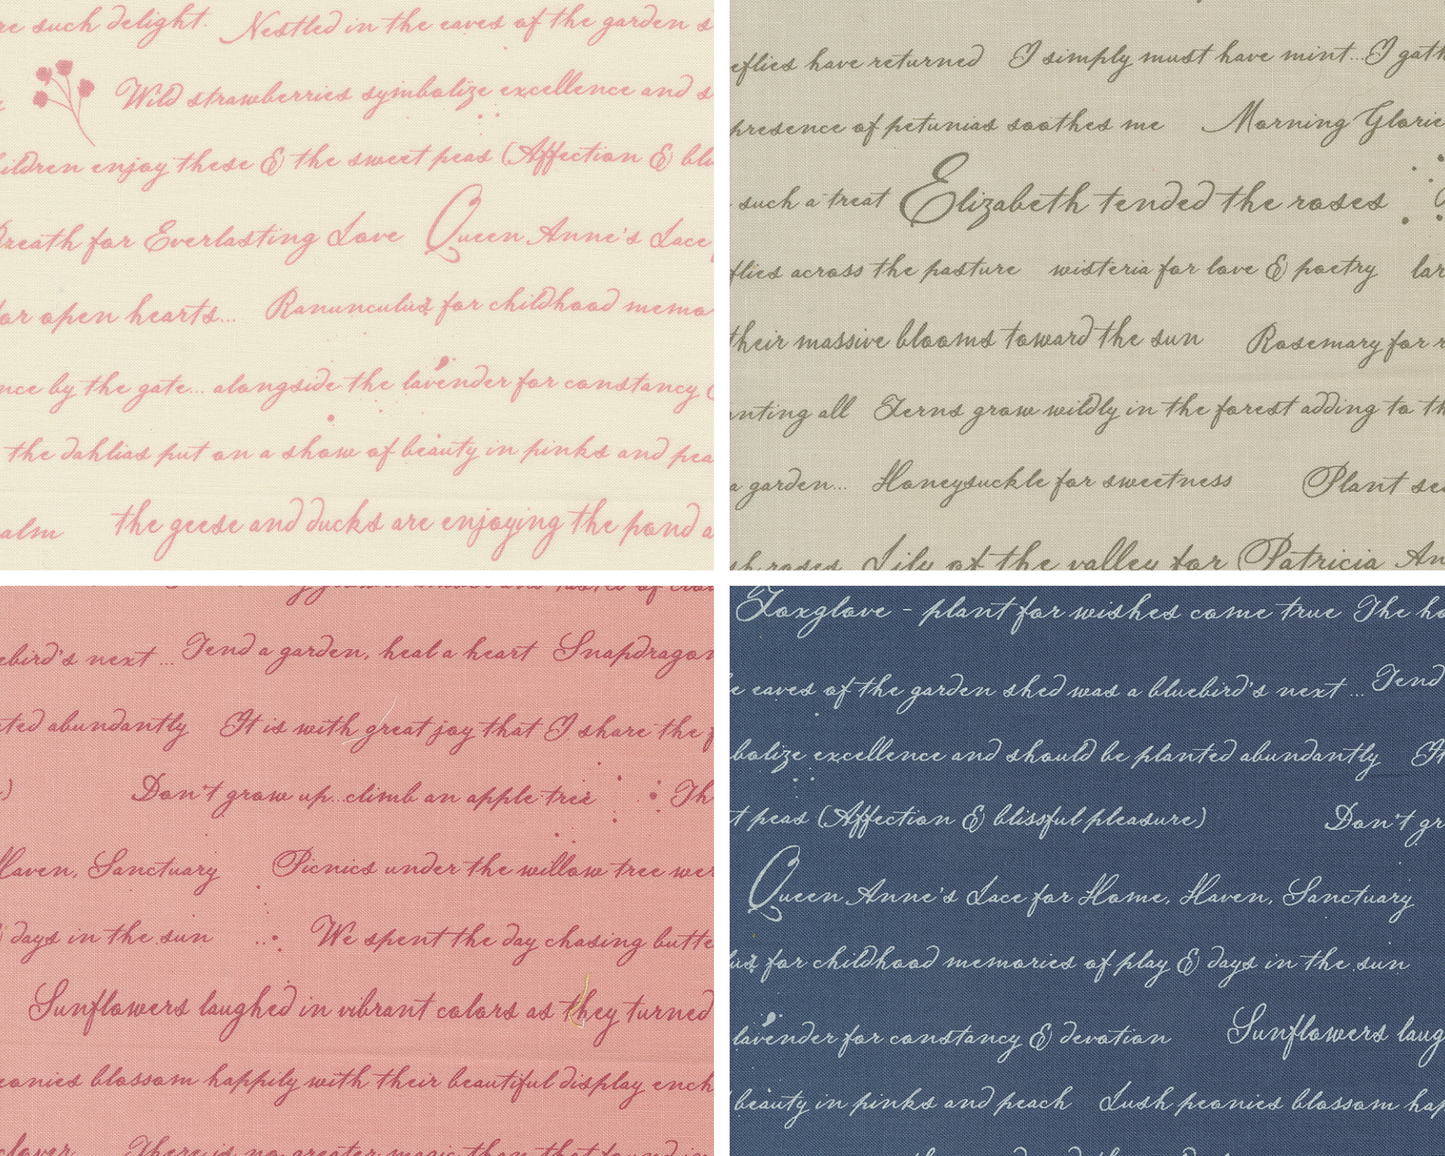 re such delight. Nestled in the eaves of the garden s
Wild strawberries symbolize excellence and s
ildren enjoy these & the sweet peas (Affection & bli
Breath for Everlasting Love Queen Anne's Lace
for open hearts... Ranunculus for childhood memo
nce by the gate... alongside the lavender for constancy &
the dahlias put on a show of beauty in pinks and pea
alm the geese and ducks are enjoying the pond a
eflies have returned I simply must have mint...I gath
presence of petunias soothes me Morning Glorie
such a treat Elizabeth tended the roses
flies across the pasture wisteria for love & poetry lar
their massive blooms toward the sun Rosemary for r
nting all Ferns grow wildly in the forest adding to th
a garden... Honeysuckle for sweetness Plant see
sh roses Lily of the valley for (Patricia An
ebird's next ... Tend a garden, heal a heart Snapdragon
ted abundantly It is with great joy that I share the f
) Don't grow up...climb an apple tree Th
Haven, Sanctuary Picnics under the willow tree wer
days in the sun We spent the day chasing butte
Sunflowers laughed in vibrant colors as they turned
eonies blossom happily with their beautiful display ench
clover There is no greater magic than that found in
Foxglove - plant for wishes come true The ho
e eaves of the garden shed was a bluebird's next ... Tend
bolize excellence and should be planted abundantly It
t peas (Affection & blissful pleasure) Don't gr
Queen Anne's Lace for Home, Haven, Sanctuary
lus for childhood memories of play & days in the sun
lavender for constancy & devotion Sunflowers laug
beauty in pinks and peach Lush peonies blossom hap